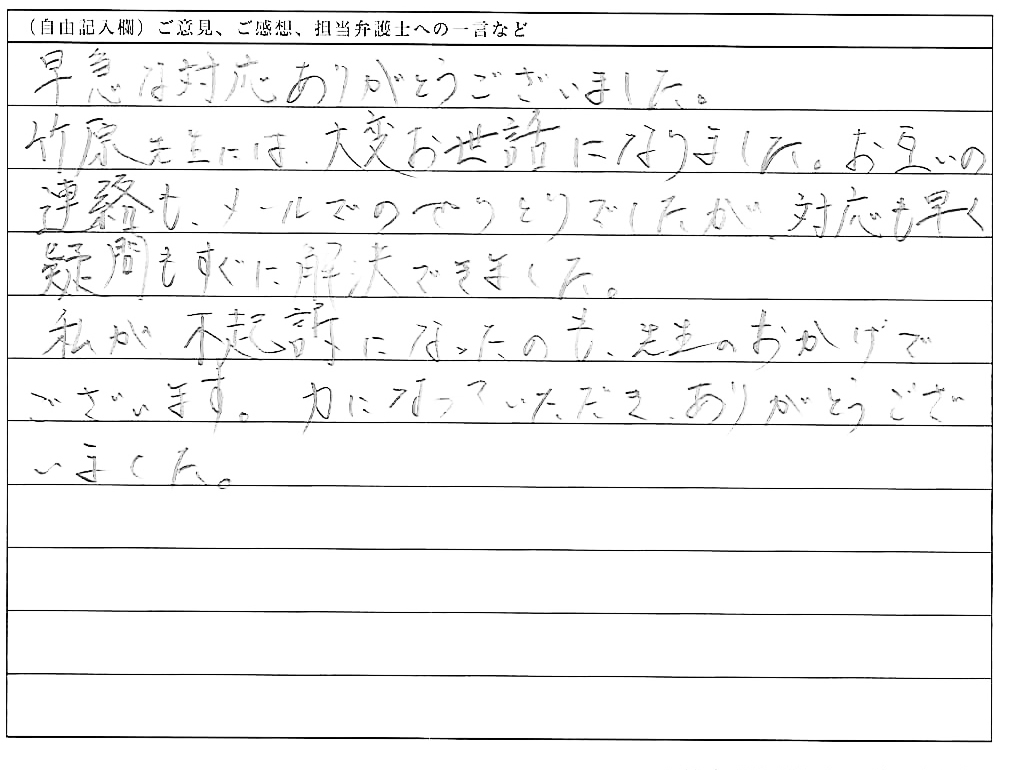 （自由記入欄）ご意見、ご感想、担当弁護士への一言など
早急な対応ありがとうございました。
竹原先生には、大変お世話になりました。お互いの
連絡も、メールでのやりとりでしたが、対応も早く
疑問もすぐに解決できました。
私が不起訴になったのも、先生のおかげで
ございます。力になっていただき、ありがとうござ
いました。